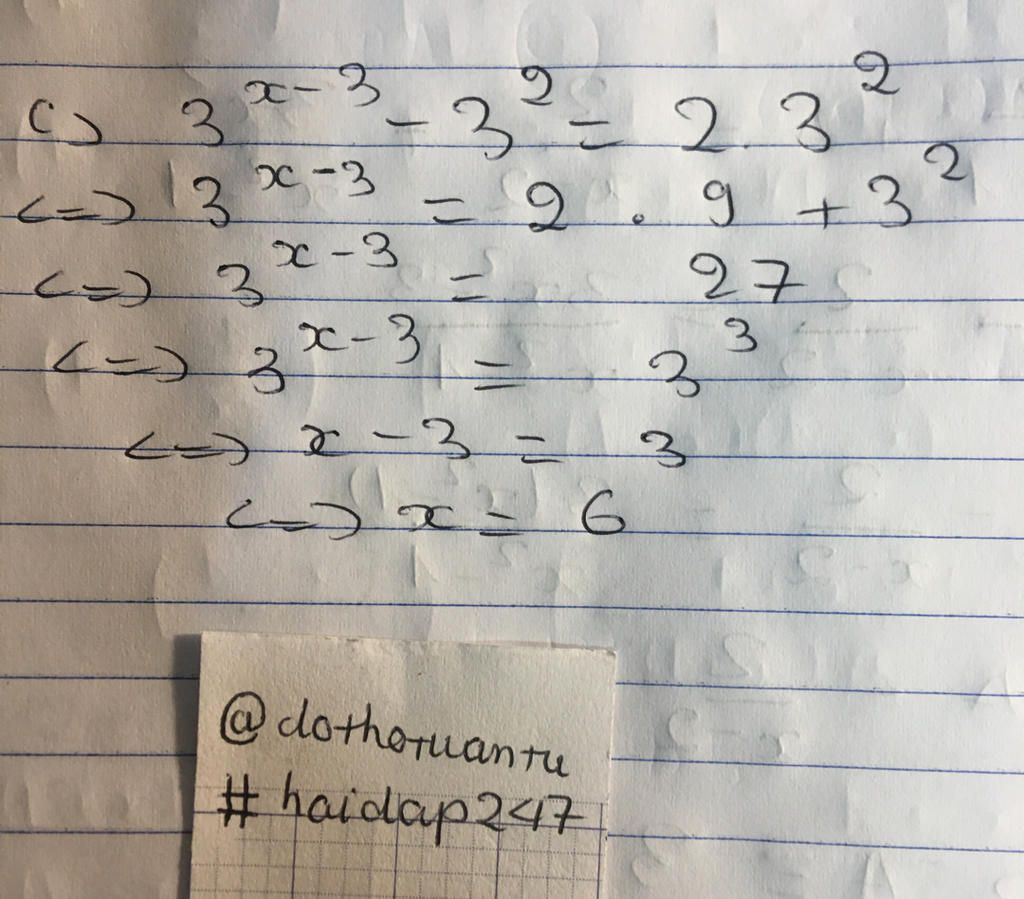 c) 3^{x-3} - 3^2 = 2.3^2
<=> 3^{x-3} = 2 . 9 + 3^2
<=> 3^{x-3} = 27
<=> 3^{x-3} = 3^3
<=> x - 3 = 3
<=> x = 6
@dothotuantu
# haidap247